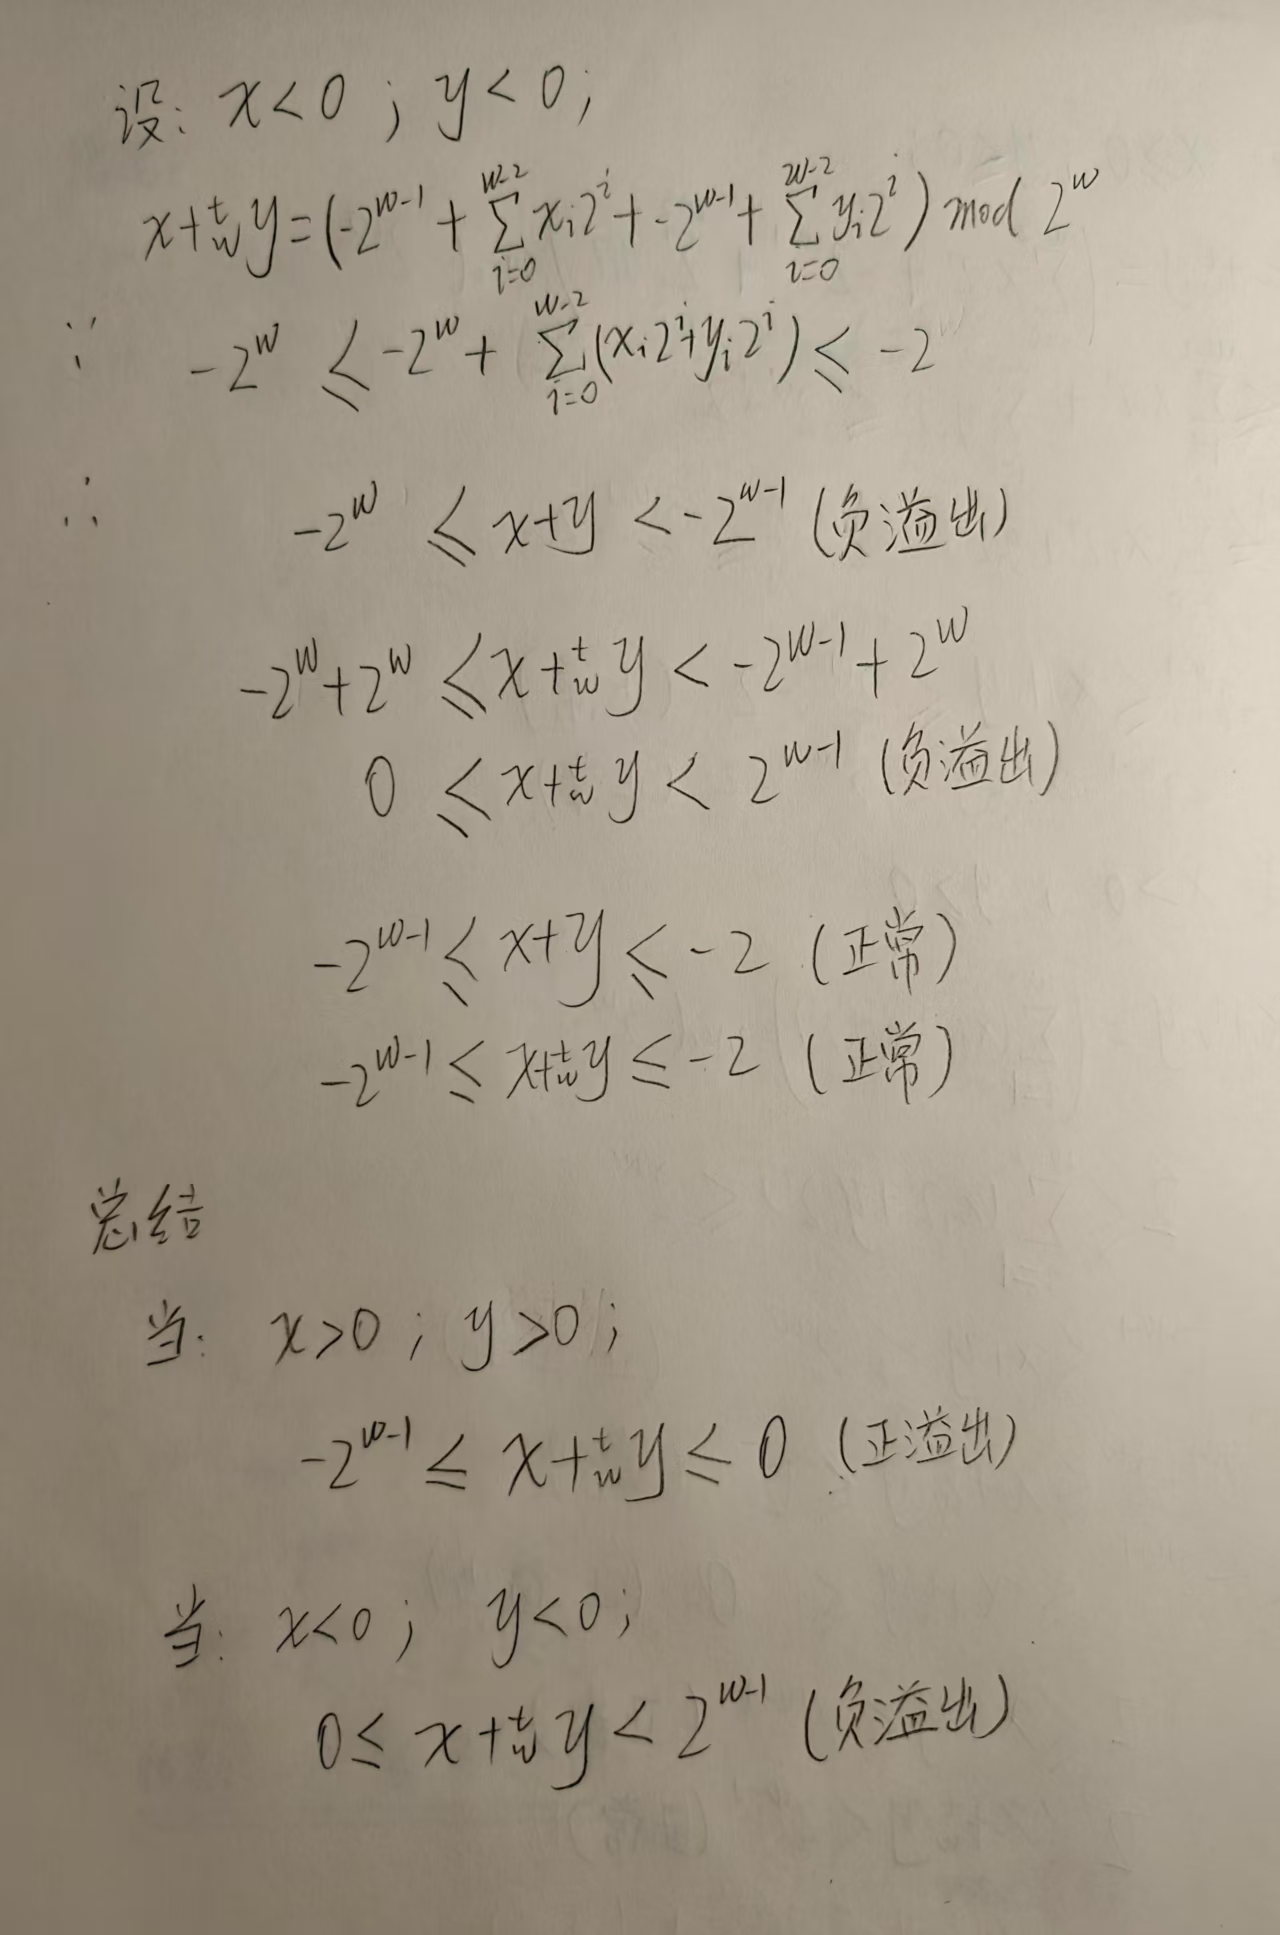 设: x<0 ; y<0;
x+ᵗ_w y=(-2^{w-1} + ∑_{i=0}^{w-2} x_i 2^i + -2^{w-1} + ∑_{i=0}^{w-2} y_i 2^i) mod 2^w
∵ -2^w ≤ -2^w + ∑_{i=0}^{w-2} (x_i 2^i + y_i 2^i) ≤ -2
∴ -2^w ≤ x+y < -2^{w-1} (负溢出)
-2^w+2^w ≤ x+ᵗ_w y < -2^{w-1}+2^w
0 ≤ x+ᵗ_w y < 2^{w-1} (负溢出)
-2^{w-1} ≤ x+y ≤ -2 (正常)
-2^{w-1} ≤ x+ᵗ_w y ≤ -2 (正常)
总结
当: x>0 ; y>0;
-2^{w-1} ≤ x+ᵗ_w y ≤ 0 (正溢出)
当: x<0; y<0;
0 ≤ x+ᵗ_w y < 2^{w-1} (负溢出)